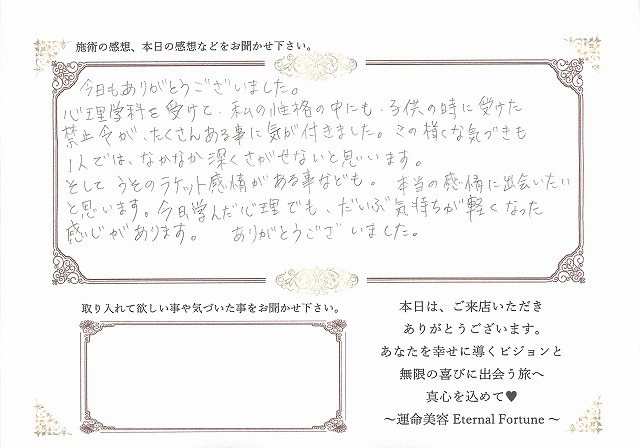 施術の感想、本日の感想などをお聞かせ下さい。
今日もありがとうございました。
心理学科を受けて、私の性格の中にも、子供の時に受けた
禁止令が、たくさんある事に気が付きました。この様な気づきも
1人では、なかなか深くさがせないと思います。
そして うそのラケット感情がある事なども。 本当の感情に出会いたい
と思います。今日、学んだ心理でも、だいぶ気持ちが軽くなった
感じがあります。 ありがとうございました。
取り入れて欲しい事や気づいた事をお聞かせ下さい。
本日は、ご来店いただき
ありがとうございます。
あなたを幸せに導くビジョンと
無限の喜びに出会う旅へ
真心を込めて♥
～運命美容 Eternal Fortune～